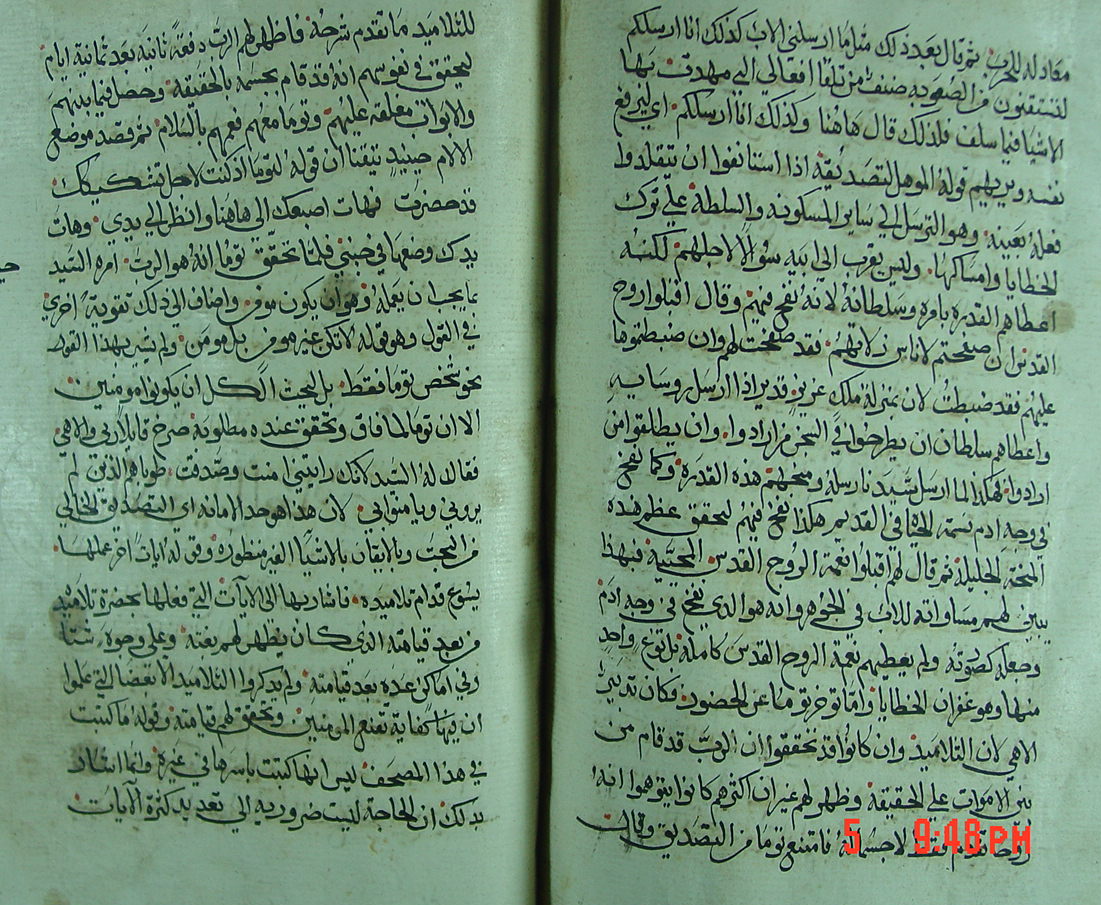 معادله للحرب ثم قال بعد ذلك مثلما ارسلني الاب كذلك انا ارسلكم
لتستقنون من الصعوبه صنف من تلقا افعالي التي مهدت بها
الاشيا فيما سلف فلذلك قال هاهنا وكذلك انا ارسلكم اي ليرفع
نفسه ويريهم قوله الموهل للتصديقة اذا استانفوا ان يتقلدوا
فعله بعينه وهو الترسل الي ساير المسكونه والسلطة علي ترك
الخطايا وامساكها وليس يقرب الي ابيه سوالا لاجلهم لكنه
اعطاهم القدره بامره وسلطانه لانه نفخ فيهم وقال اقبلوا روح
القدس ان صفحتم لاناس زلاتهم فقد صفحت لهم وان ضبطتموها
عليهم فقد ضبطت لان بمنزلة ملك عزيز قدير اذا ارسل روسايه
واعطاهم سلطان ان يطرحوا في السجن من ارادوا وان يطلقوا من
ارادوا فهكذا لما ارسل سيدنا رسله ومنحهم هذه القدره وكما نفخ
في وجه ادم نسمة الحياة في القديم هكذا نفخ فيهم ليحقق عظم هذه
المنحة الجليلة ثم قال لهم اقبلوا نعمة الروح القدس المحيية فبهذا
يبين لهم مساواته للاب في الجوهر وانه هو الذي نفخ في وجه ادم
وجعله كصورته ولم يعطيهم نعمة الروح القدس كاملة بل نوع واحد
منها وهو غفران الخطايا واما توخر توما عن الحضور فكان تدبير
الاهي لان التلاميذ وان كانوا قد تحققوا ان الرب قد قام من
بين الاموات علي الحقيقة وظهر لهم غير ان اكثرهم كانوا يتوهموا انه
روحا قدم فقط لا جسمانه فامتنع توما من التصديق وقالت
للتلاميذ ما تقدم شرحه فاظهر لهم الرب دفعة ثانية بعد ثمانية ايام
ليحقق في نفوسهم انه قد قام بجسمه بالحقيقة وحصل فيما بينهم
والابواب مغلقه عليهم وتوما معهم فعمهم بالسلام ثم قصد موضع
الالام حينيد تيقنا ان قوله لتوما اذ كنت لاجل تشكيكك
قد حضرت فهات اصبعك الي هاهنا وانظر الي يدي وهات
يدك وضعها في جنبي فلما تحقق توما انه هو الرب امره السيد
بما يجب ان يعمله وهو ان يكون موقن واضاف الي ذلك تقوية اخري
في القول وهو قوله لا تكن غير موقن بل مومن ولم يشير بهذا القول
نحو شخص توما فقط بل لحيث الكل ان يكونوا مومنين
الا ان توما لما فاق وتحقق عنده مطلوبه صرخ قايلا ربي والاهي
فقال له السيد لانك رايتني امنت وصدقت طوبا هم الذين لم
يروني ويامنوا بي لان هذا هو حد الامانه اي التصديق الخالي
من البحث وبالايقان بالاشيا الغير منظوره وقوله ايات اخر عملها
يسوع قدام تلاميذه فاشار بها الي الآيات التي فعلها بحضرة تلاميذه
من بعد قيامته الذي كان يظهر لهم بغتة وعلي وجوه شتا
وفي اماكن عده بعد قيامته ولم يذكروا التلاميذ الا بعضا التي علموا
ان فيها كفاية تقنع المومنين وتحقق لهم قيامته وقوله ما كتبت
في هذا المصحف ليس انها كتبت باسرها في غيره وانما اشار
بذلك ان الحاجة ليست ضروريه الي تعديد كثرة الآيات
5 9:48 PM